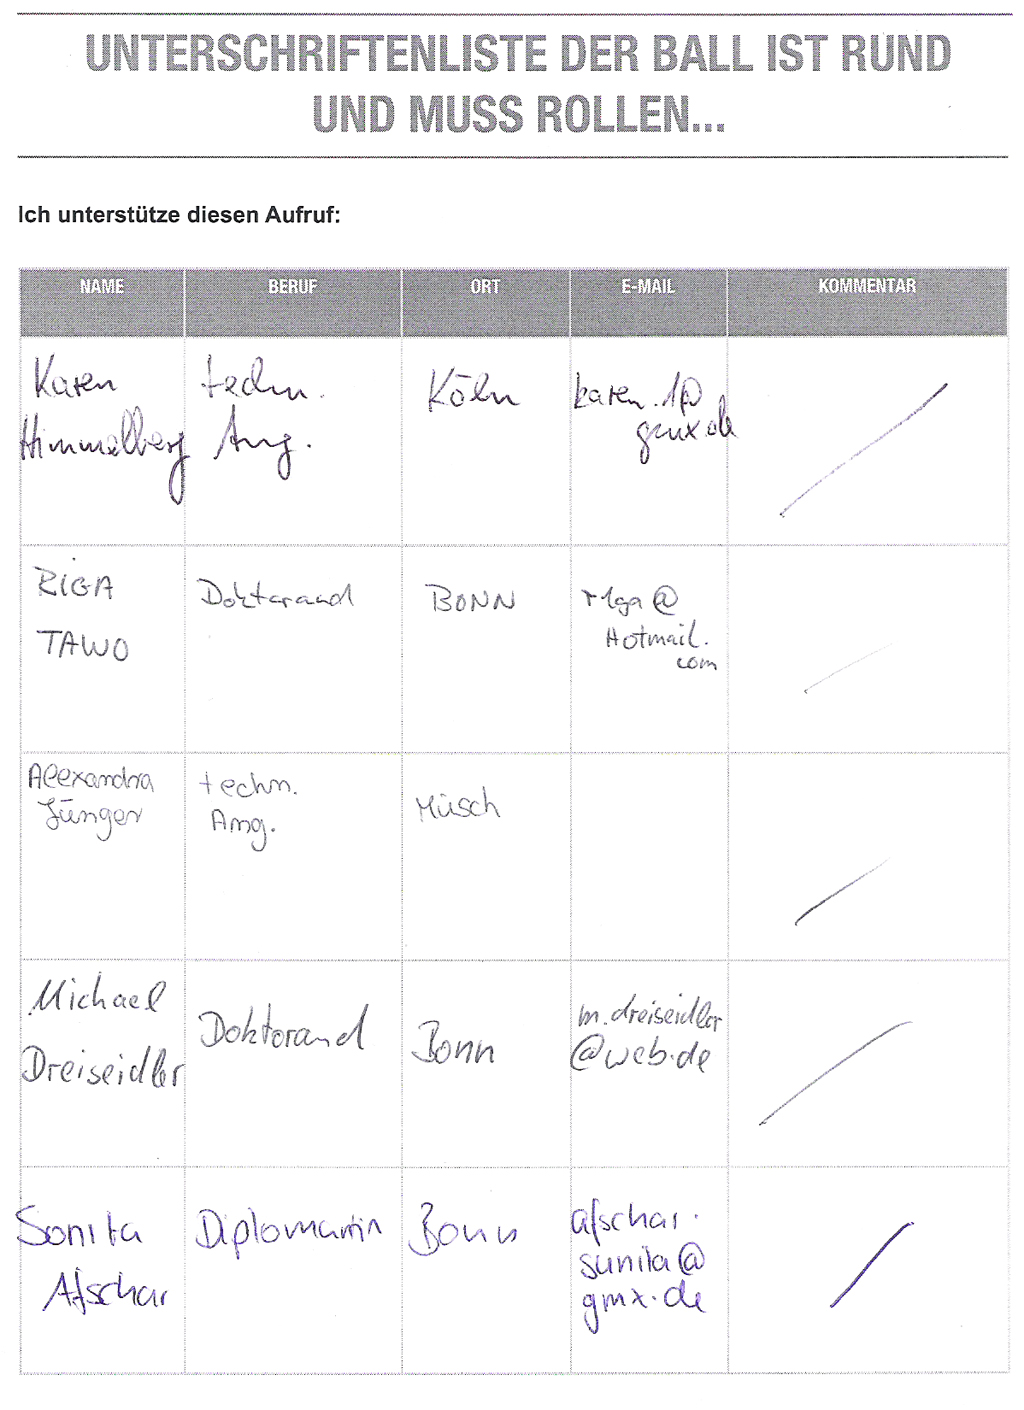 UNTERSCHRIFTENLISTE DER BALL IST RUND
UND MUSS ROLLEN...
Ich unterstütze diesen Aufruf:
NAME BERUF ORT E-MAIL KOMMENTAR
Karen techn. Köln karen.1@
Himmelberg Ang. gmx.de
RIGA Doktorand BONN @
TAWO Hotmail.
com
Alexandra techn.
Jünger Ang. Müsch
Michael Doktorand Bonn m.dreiseidler
Dreiseidler @web.de
Sonita Diplomantin Bonn afschar.
Afschar sunita@
gmx.de